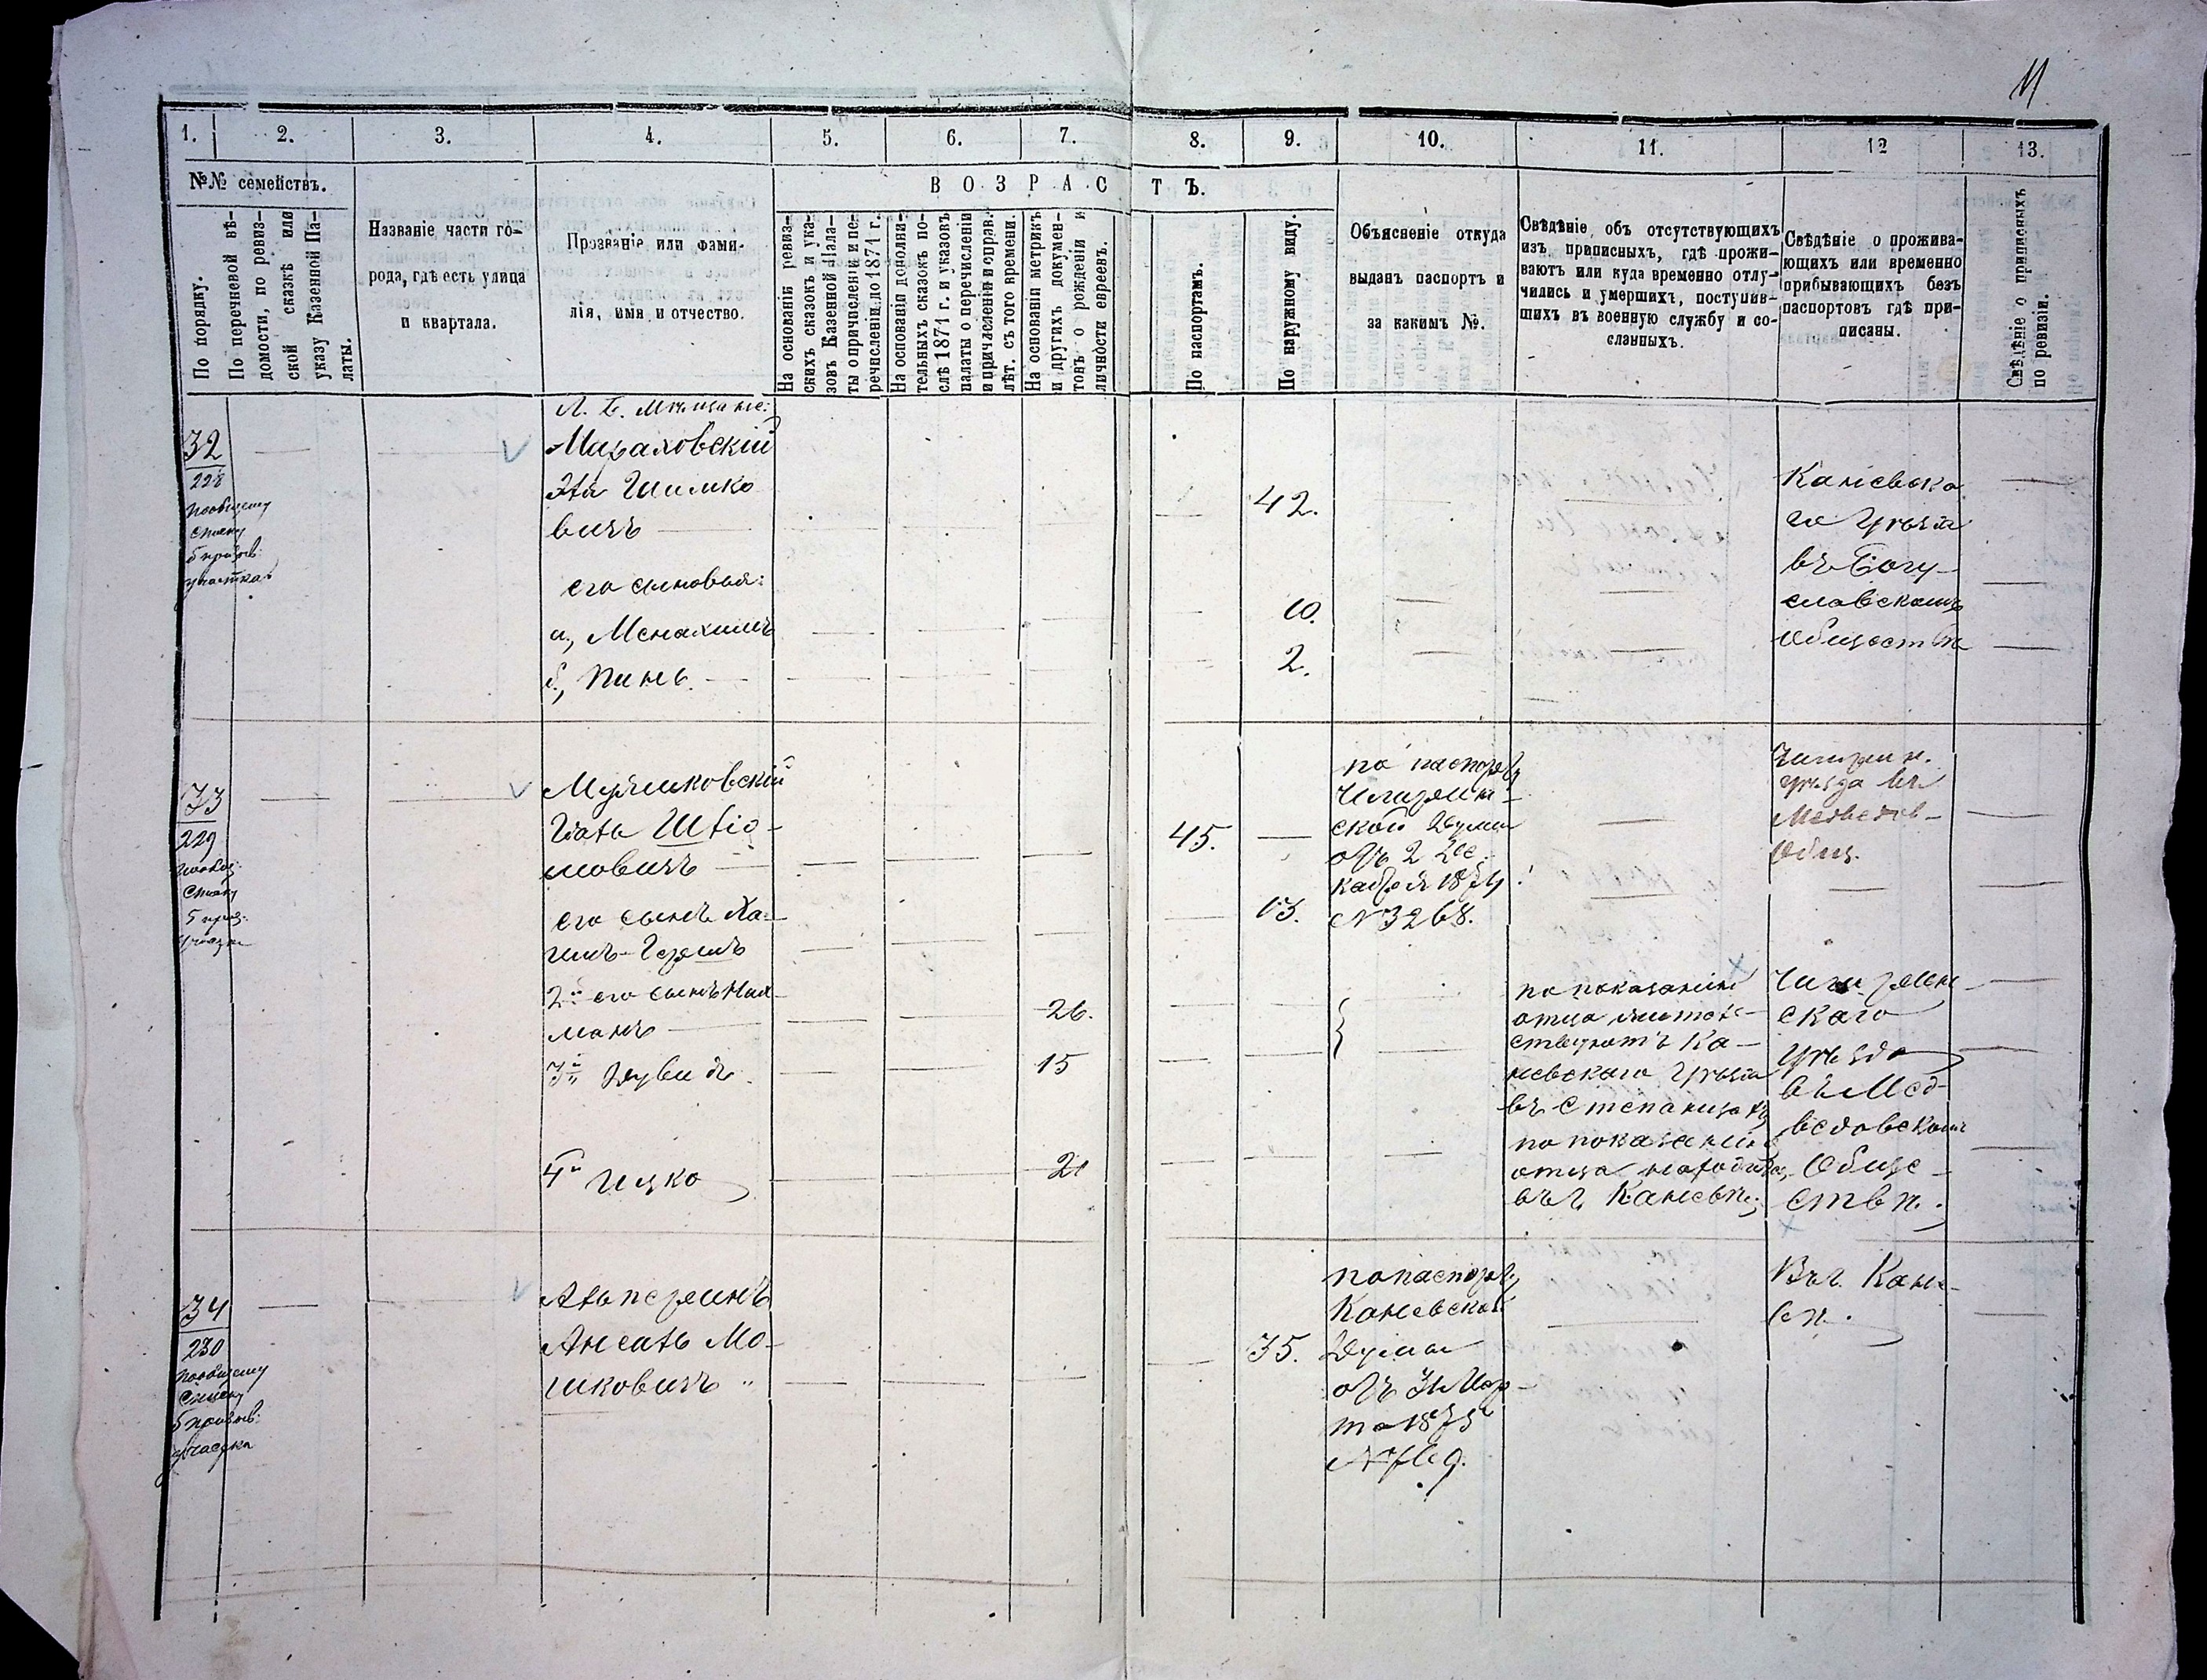 11
1.
2.
3.
4.
5.
6.
7.
8.
9.
10.
11.
12
13.
№№ семействъ.
По порядку.
По перечневой вѣ-
домости, по ревиз-
ской сказкѣ или
указу Казенной Па-
латы.
Названіе части го-
рода, гдѣ есть улица
и квартала.
Прозваніе или фами-
лія, имя и отчество.
ВОЗРАСТЪ.
На основаніи ревиз-
скихъ сказокъ и ука-
зовъ Казенной Пала-
ты о причисленіи и пе-
речисленіи до 1871 г.
На основаніи дополни-
тельныхъ сказокъ по-
слѣ 1871 г. и указовъ
палаты о перечисленіи
и причисленіи и справ.
лѣт. съ того времени.
На основаніи метрикъ
и другихъ докумен-
товъ о рожденіи и
личности евреевъ.
По паспортамъ.
По наружному виду.
Объясненіе откуда
выданъ паспортъ и
за какимъ №.
Свѣдѣніе объ отсутствующихъ
изъ приписныхъ, гдѣ прожи-
ваютъ или куда временно отлу-
чились и умершихъ, поступив-
шихъ въ военную службу и со-
сланныхъ.
Свѣдѣніе о прожива-
ющихъ или временно
прибывающихъ безъ
паспортовъ гдѣ при-
писаны.
Свѣдѣніе о приписныхъ
по ревизіи.
32
228
пообщему
списку
5 призыв:
участка
Мицаловскій
Шимко
вичъ
его сыновья:
а, Менахимъ
б, Пинь
42.
10.
2.
Каневска
го Уѣзда
въ Богу-
славскомъ
Обществѣ
33
229
пообщ:
списку
5 приз:
Мушмковскій
мовичъ
его сынъ Ха-
имъ-Гершъ
2й его сынъ Нах-
манъ
3й Дувидъ
4й Ицко
45.
13.
26.
15
21
по паспорту
Чигирин-
ской Думы
отъ 2 Де-
кабря 1874
№3268.
по показанію
отца жительс-
твуютъ Ка-
невскаго Уѣзда
въ Степанцахъ
по показанію
отца находится
въ г. Каневѣ;
Чигирин.
уѣзда въ
Медведов-
Общ.
Чигирин-
скаго
Уѣзда
въ Мед-
ведовскомъ
Обще-
ствѣ.
34
230
пообщему
списку
5 призыв:
участка
Альперинъ
Ансель Мо-
шковичъ
35.
попаспорту
Каневской
Думы
отъ 31 Мар-
та 1875
Въ г. Кане-
вѣ.